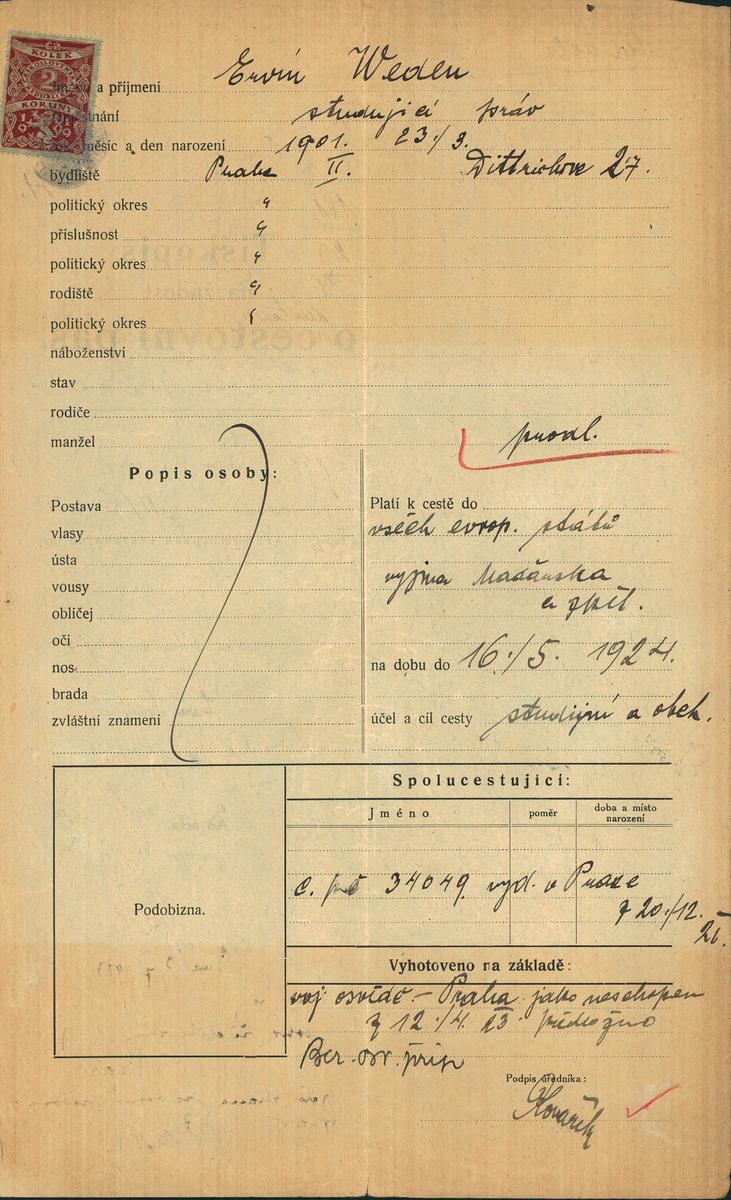 KOLEK
2
KORUNY
a příjmení Ervín Weden
studující práv
měsíc a den narození 1901. 23/3.
bydliště Praha II. Dittrichova 27.
politický okres "
příslušnost "
politický okres "
rodiště "
politický okres "
náboženství
stav
rodiče
manžel
prodl.
Popis osoby:
Postava
vlasy
ústa
vousy
obličej
oči
nos
brada
zvláštní znamení
Platí k cestě do
všech evrop. států
vyjma Maďarska
a zpět.
na dobu do 16./5. 1924.
účel a cíl cesty studijní a obch.
Spolucestující:
Jméno
poměr
doba a místo narození
č. 34049 vyd. v Praze
z 20./12.
Podobizna.
Vyhotoveno na základě:
voj. osvědč. – Praha jako neschopen
z 12./4. 23. předloženo
Ber. osv. přip
Podpis úředníka:
Kovařík